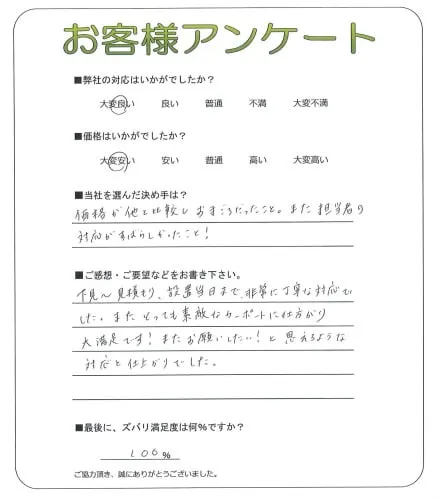 お客様アンケート
■弊社の対応はいかがでしたか?
大変良い 良い 普通 不満 大変不満
■価格はいかがでしたか?
大変安い 安い 普通 高い 大変高い
■当社を選んだ決め手は?
価格が他と比較しお手ごろだったこと。また担当者の
対応がすばらしかったこと!
■ご感想・ご要望などをお書き下さい。
下見〜見積もり、設置当日まで、非常に丁寧な対応で
した。また とっても素敵なカーポートに仕上がり
大満足です!またお願いしたい!と思えるような
対応と仕上がりでした。
■最後に、ズバリ満足度は何%ですか?
100%
ご協力頂き、誠にありがとうございました。